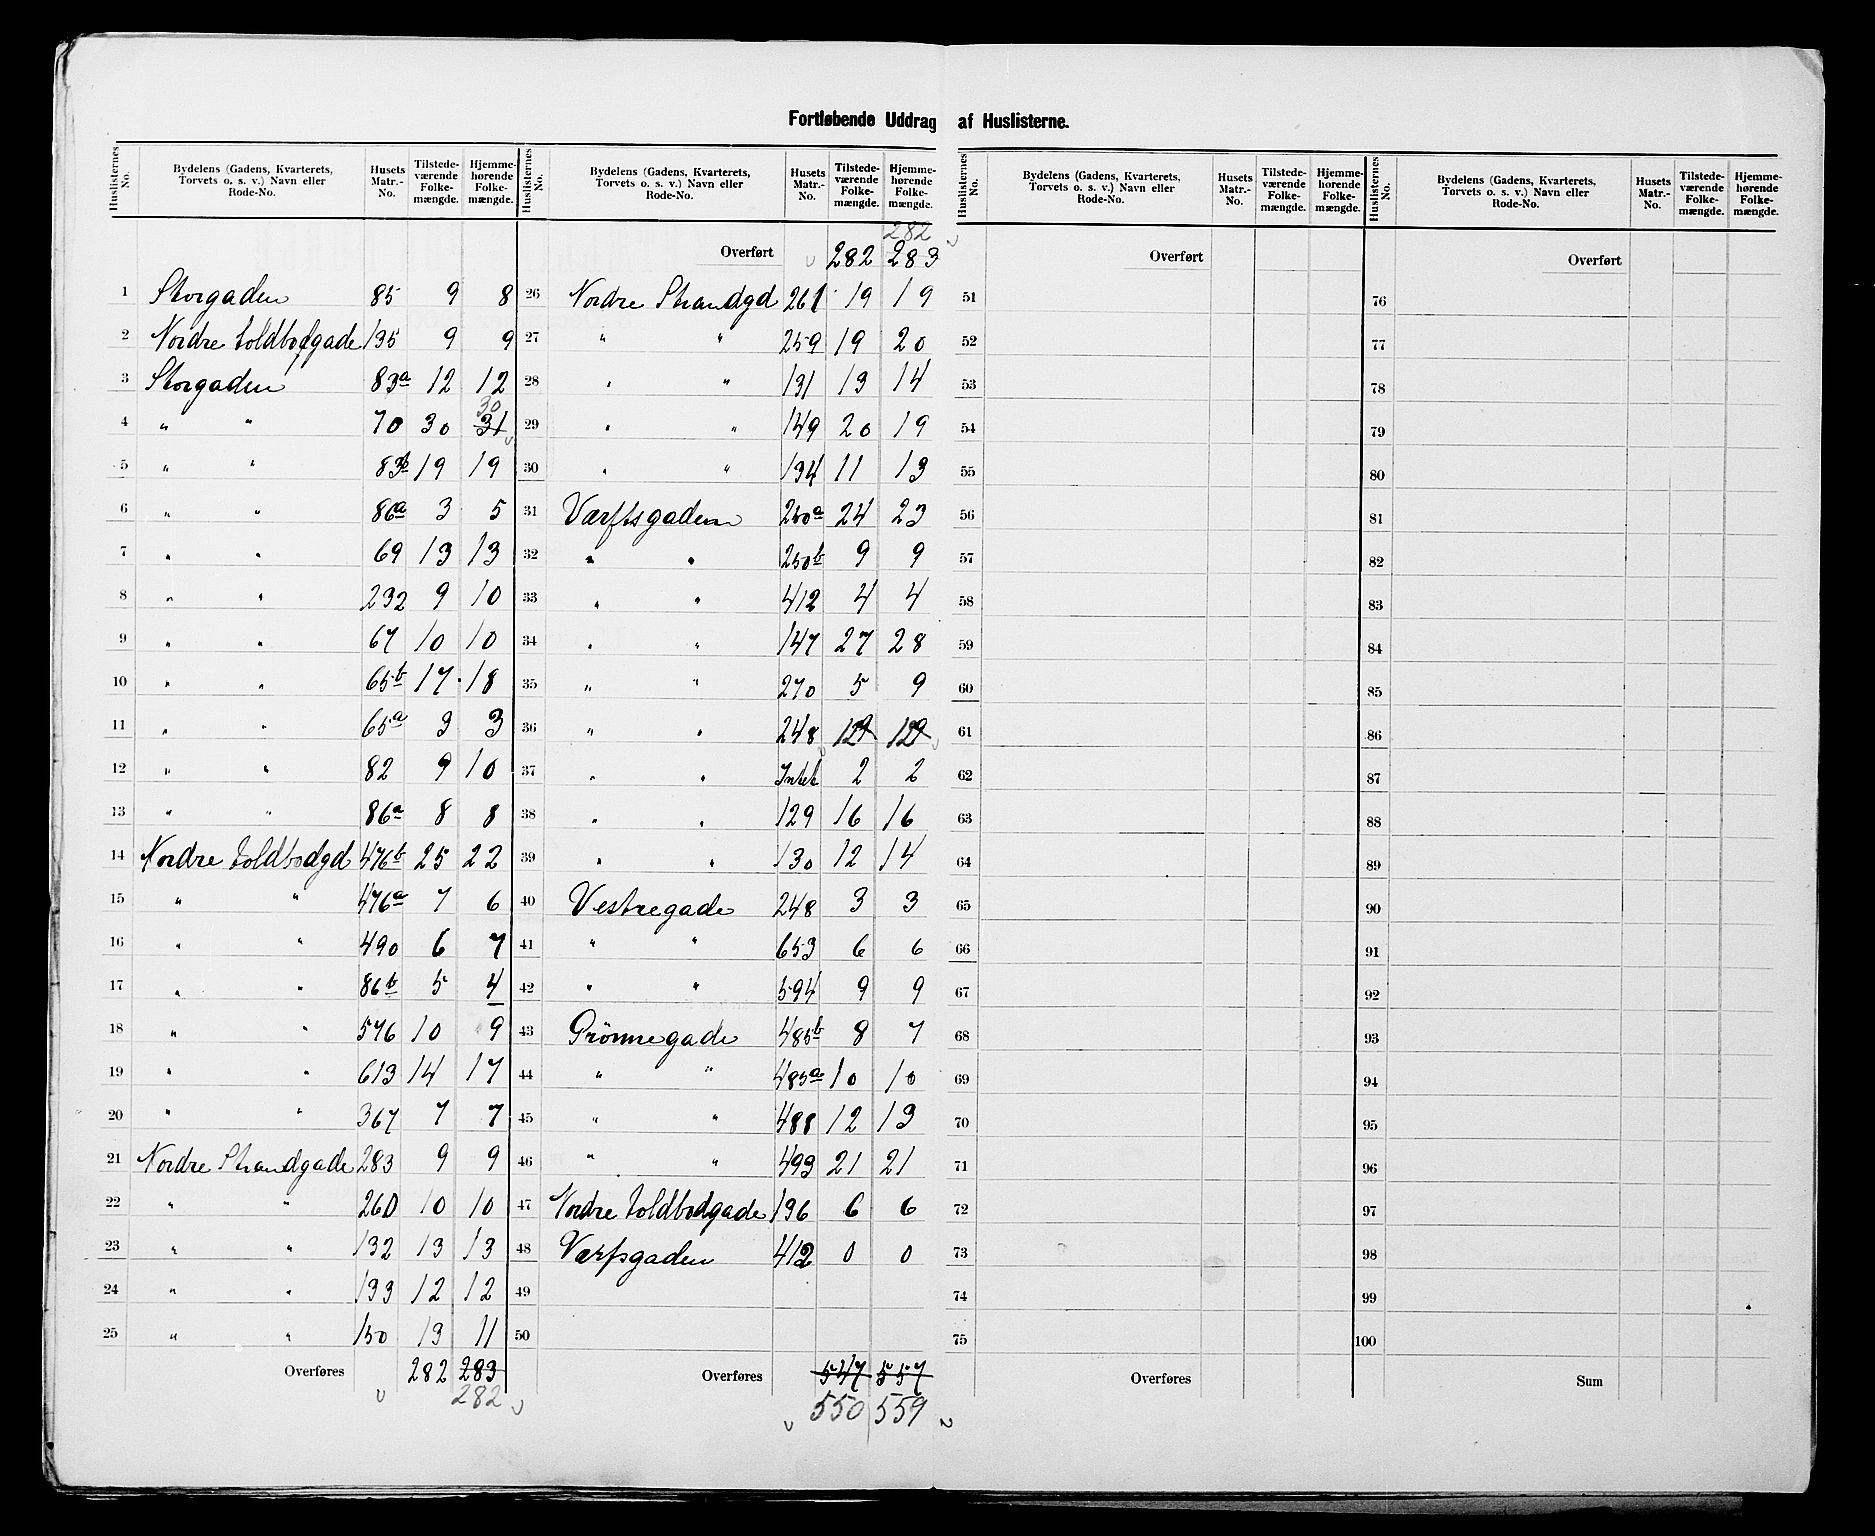 Fortløbende Uddrag af Huslisterne.
Huslisternes No. | Bydelens (Gadens, Kvarterets, Torvets o. s. v.) Navn eller Rode-No. | Husets Matr.-No. | Tilstedeværende Folkemængde. | Hjemmehørende Folkemængde.
1 Storgaden 85 9 8
2 Nordre Toldbodgade 135 9 9
3 Storgaden 83a 12 12
4 " " 70 30 31 30
5 " " 83b 19 19
6 " " 86a 3 5
7 " " 69 13 13
8 " " 232 9 10
9 " " 67 10 10
10 " " 65b 17 18
11 " " 65a 3 3
12 " " 82 9 10
13 " " 86a 8 8
14 Nordre Toldbodgd 476b 25 22
15 " " 476a 7 6
16 " " 490 6 7
17 " " 86b 5 4
18 " " 576 10 9
19 " " 613 14 17
20 " " 367 7 7
21 Nordre Strandgade 283 9 9
22 " " 260 10 10
23 " " 132 13 13
24 " " 133 12 12
25 " " 150 13 11
Overføres 282 283
282
Huslisternes No. | Bydelens (Gadens, Kvarterets, Torvets o. s. v.) Navn eller Rode-No. | Husets Matr.-No. | Tilstedeværende Folkemængde. | Hjemmehørende Folkemængde.
282
Overført 282 283
26 Nordre Strandgd 261 19 19
27 " " 259 19 20
28 " " 131 13 14
29 " " 149 20 19
30 " " 134 11 13
31 Værftsgaden 250a 24 23
32 " " 250b 9 9
33 " " 412 4 4
34 " " 147 27 28
35 " " 270 5 9
36 " " 248
37 " " Intet 2 2
38 " " 129 16 16
39 " " 130 12 14
40 Vestregade 248 3 3
41 " " 653 6 6
42 " " 594 9 9
43 Grönnegade 485b 8 7
44 " " 485a 10 10
45 " " 488 12 13
46 " " 493 21 21
47 Nordre Toldbodgade 136 6 6
48 Værfsgaden 412 0 0
49
50
Overføres 547 557
550 559
Huslisternes No. | Bydelens (Gadens, Kvarterets, Torvets o. s. v.) Navn eller Rode-No. | Husets Matr.-No. | Tilstedeværende Folkemængde. | Hjemmehørende Folkemængde.
Overført
51
52
53
54
55
56
57
58
59
60
61
62
63
64
65
66
67
68
69
70
71
72
73
74
75
Overføres
Huslisternes No. | Bydelens (Gadens, Kvarterets, Torvets o. s. v.) Navn eller Rode-No. | Husets Matr.-No. | Tilstedeværende Folkemængde. | Hjemmehørende Folkemængde.
Overført
76
77
78
79
80
81
82
83
84
85
86
87
88
89
90
91
92
93
94
95
96
97
98
99
100
Sum